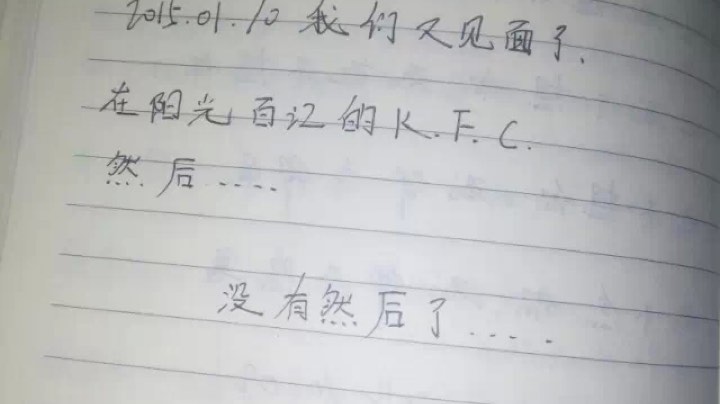 2015.01.10 我们又见面了.
在阳光百记的K.F.C.
然后.....
没有然后了.....